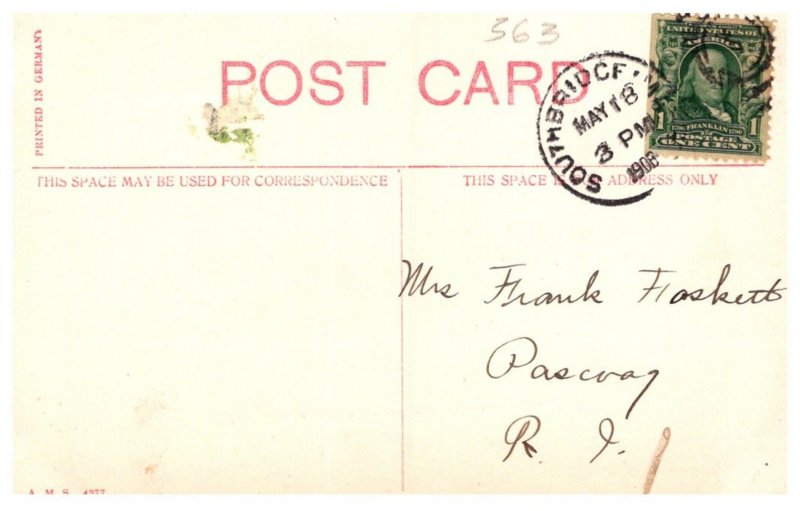 363
PRINTED IN GERMANY
POST CARD
SOUTHBRIDGE, M
MAY 18
3 PM
1908
UNITED STATES OF
AMERICA
1 1790 FRANKLIN 1790 1
POSTAGE
ONE CENT
THIS SPACE MAY BE USED FOR CORRESPONDENCE
THIS SPACE ADDRESS ONLY
Mrs Frank Foskett
Pascoag
R. I.
A. M. S. 4277